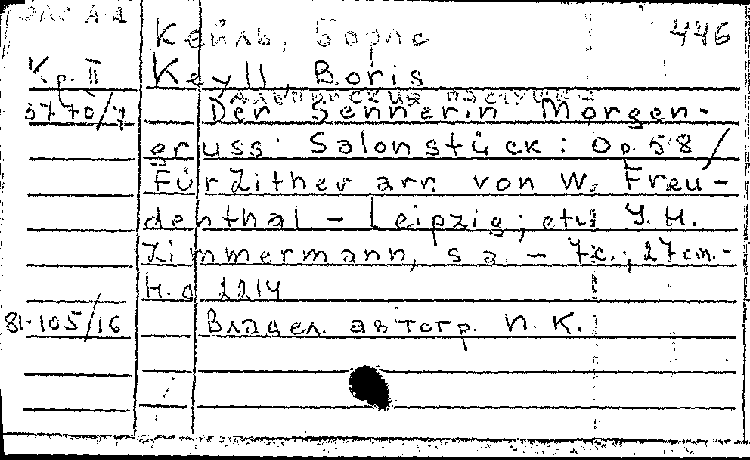 Кейль, Борис 446
Кр. II Keyll, Boris
5770/4 Der Sennerin Morgen-
gruss: Salonstück: Op. 58/
Für Zither arr. von W. Freu-
denthal – Leipzig; etc; J. H.
Zimmermann, s a. – 7 c.; 27 cm. –
Н. д 2214
81-105/16 Владел. автогр. И. К.